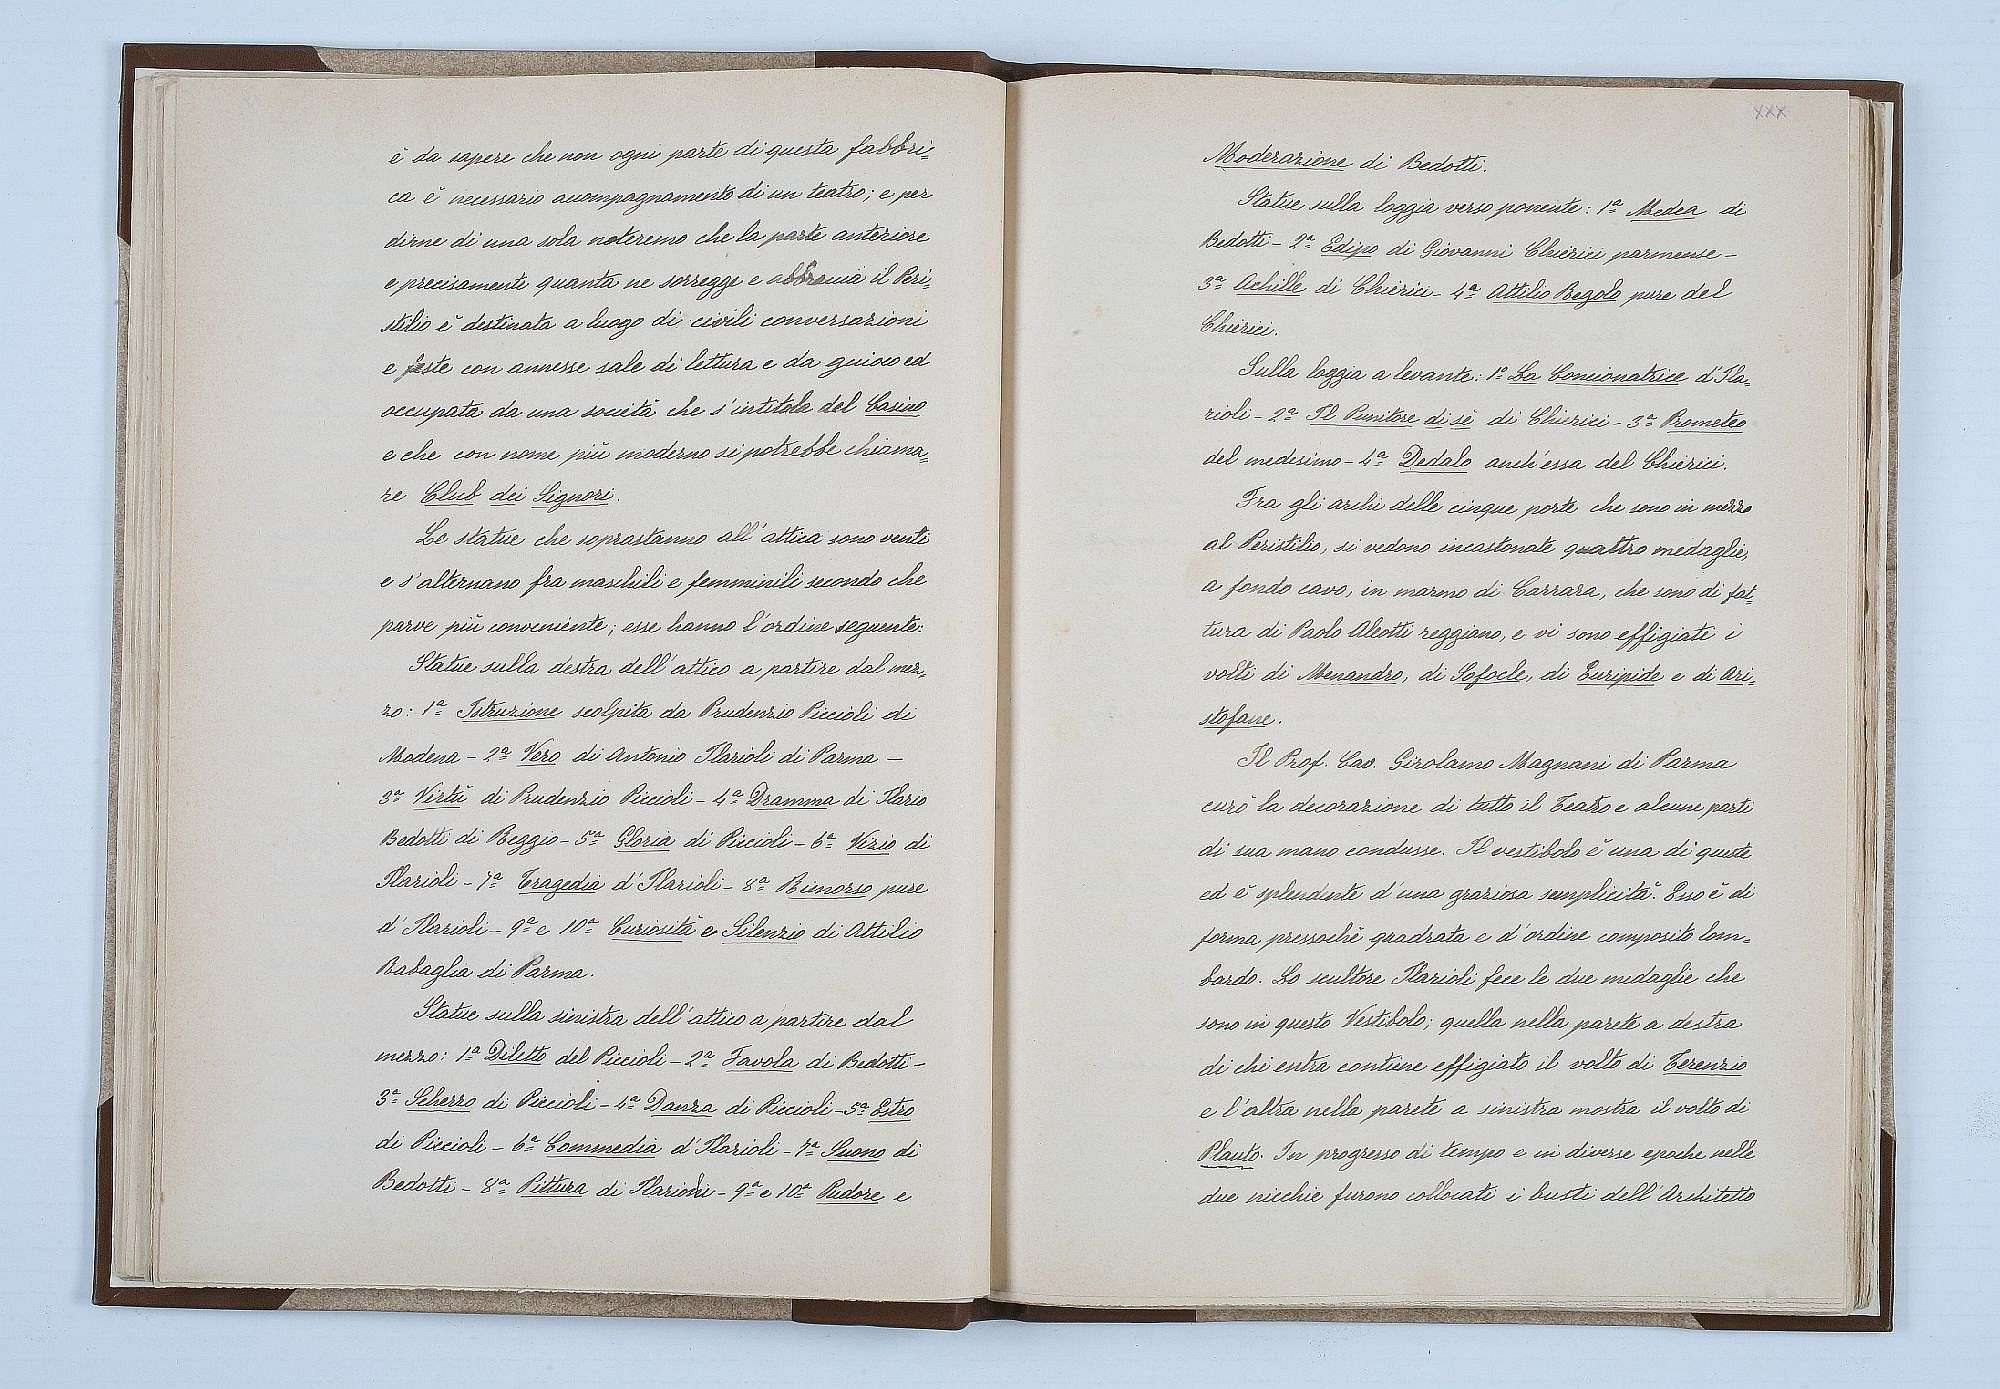 è da sapere che non ogni parte di questa fabbri=
ca è necessario accompagnamento di un teatro; e per
dirne di una sola noteremo che la parte anteriore
e precisamente quanta ne sorregge e abbraccia il Peri=
stilio è destinata a luogo di civili conversazioni
e feste con annesse sale di lettura e da giuoco ed
occupata da una società che s'intitola del Casino
e che con nome più moderno si potrebbe chiama=
re Club dei Signori.
Le statue che soprastanno all'attica sono venti
e s'alternano fra maschili e femminili secondo che
parve più conveniente; esse hanno l'ordine seguente:
Statue sulla destra dell'attico a partire dal mez=
zo: 1ª Istruzione scolpita da Prudenzio Piccioli di
Modena - 2ª Vero di Antonio Ilarioli di Parma -
3ª Virtù di Prudenzio Piccioli - 4ª Dramma di Ilario
Bedotti di Reggio - 5ª Gloria di Piccioli - 6ª Vizio di
Ilarioli - 7ª Tragedia d'Ilarioli - 8ª Rimorso pure
d'Ilarioli - 9ª e 10ª Curiosità e Silenzio di Attilio
Rabaglia di Parma.
Statue sulla sinistra dell'attico a partire dal
mezzo: 1ª Diletto del Piccioli - 2ª Favola di Bedotti -
3ª Scherzo di Piccioli - 4ª Danza di Piccioli - 5ª Estro
di Piccioli - 6ª Commedia d'Ilarioli - 7ª Suono di
Bedotti - 8ª Pittura di Ilarioli - 9ª e 10ª Pudore e
XXX
Moderazione di Bedotti.
Statue sulla loggia verso ponente: 1ª Medea di
Bedotti - 2ª Edipo di Giovanni Chierici parmense -
3ª Achille di Chierici - 4ª Attilio Regolo pure del
Chierici.
Sulla loggia a levante: 1ª La Concionatrice d'Ila=
rioli - 2ª Il Punitore di sè di Chierici - 3ª Prometeo
del medesimo - 4ª Dedalo anch'essa del Chierici.
Fra gli archi delle cinque porte che sono in mezzo
al Peristilio, si vedono incastonate quattro medaglie,
a fondo cavo, in marmo di Carrara, che sono di fat=
tura di Paolo Aleotti reggiano, e vi sono effigiati i
volti di Menandro, di Sofocle, di Euripide e di Ari=
stofane.
Il Prof. Cav. Girolamo Magnani di Parma
curò la decorazione di tutto il Teatro e alcune parti
di sua mano condusse. Il vestibolo è una di queste
ed è splendente d'una graziosa semplicità. Esso è di
forma pressochè quadrata e d'ordine composito lom=
bardo. Lo scultore Ilarioli fece le due medaglie che
sono in questo Vestibolo; quella nella parete a destra
di chi entra contiene effigiato il volto di Terenzio
e l'altra nella parete a sinistra mostra il volto di
Plauto. In progresso di tempo e in diverse epoche nelle
due nicchie furono collocati i busti dell'Architetto